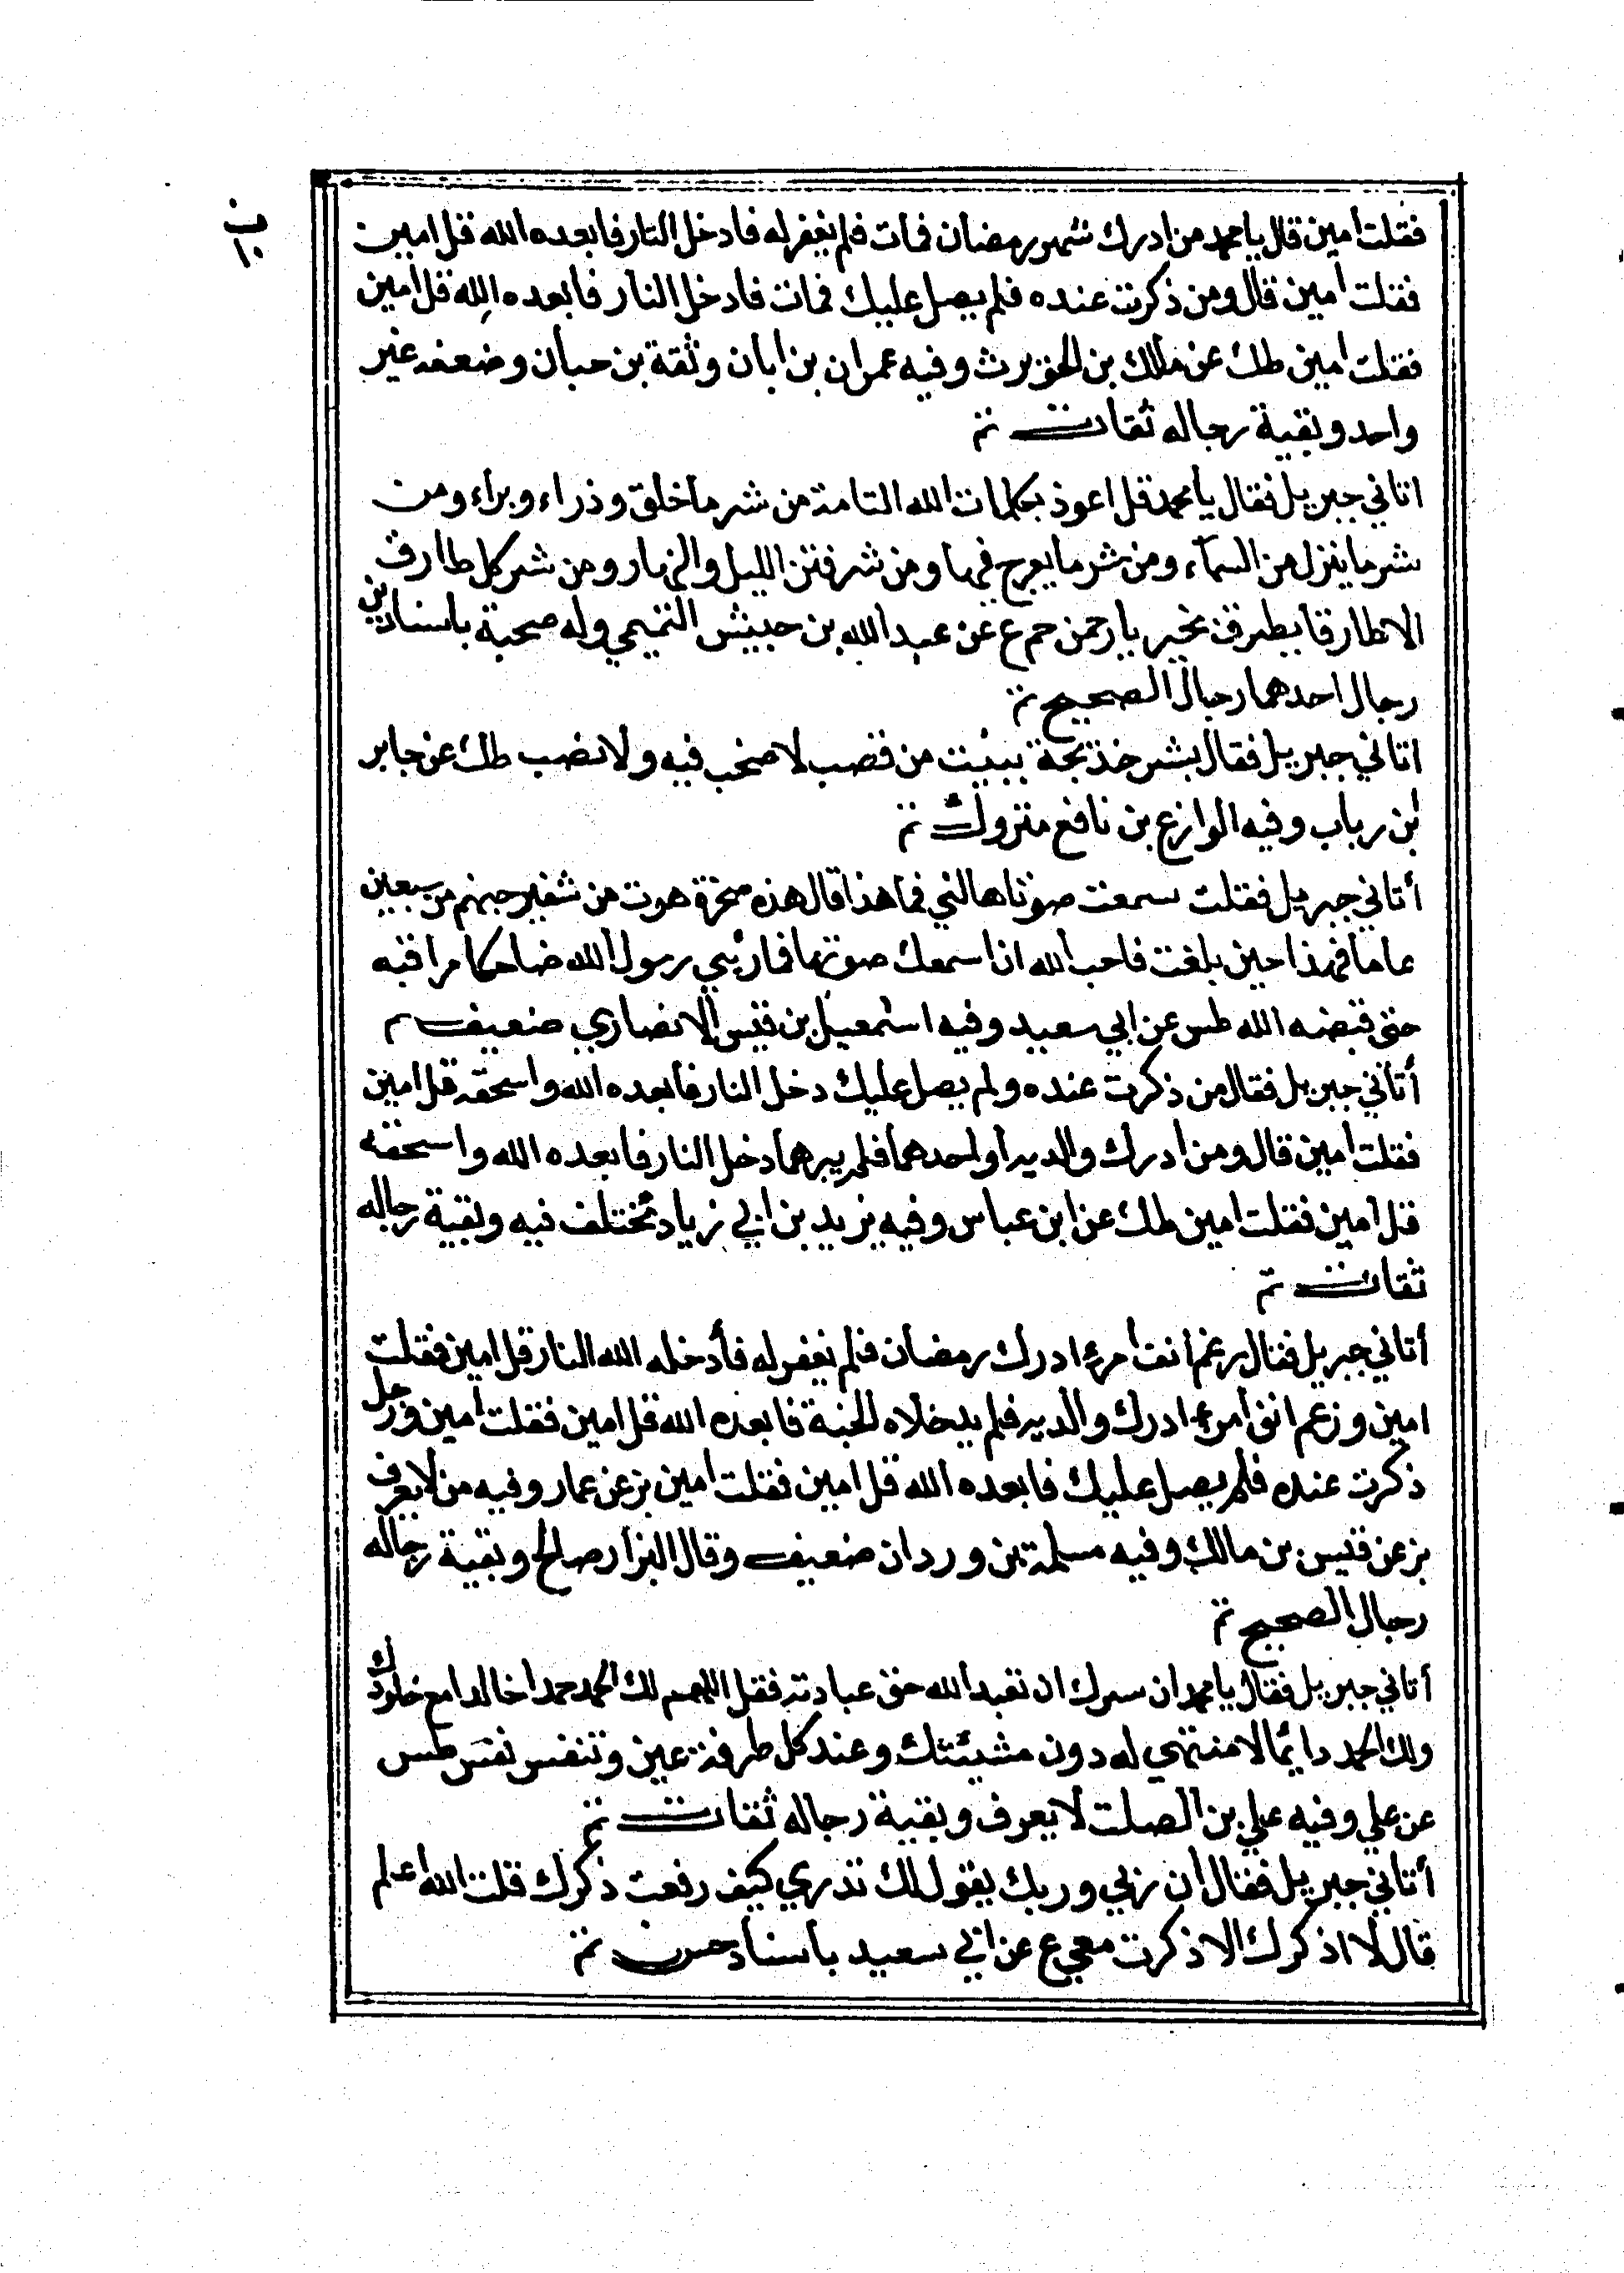 ب
١٠
فقلت امين قال يا محمد من ادرك شهر رمضان فمات فلم يغفر له فادخل النار فابعده الله قل امين
فقلت امين قال ومن ذكرت عنده فلم يصل عليك فمات فادخل النار فابعده الله قل امين
فقلت امين طك عن مالك بن الحويرث وفيه عمران بن ابان وثقة بن حبان وضعفه غير
واحد وبقية رجاله ثقات تم
اتاني جبريل فقال يا محمد قل اعوذ بكلمات الله التامة من شر ما خلق وذراء وبراء ومن
شر ما ينزل من السماء ومن شر ما يعرج فيها ومن شر فتن الليل والنهار ومن شر كل طارق
الا طارقا يطرق بخير يا رحمن حم ع عن عبد الله بن حبيش التميمي وله صحبة باسنادين
رجال احدهما رجال الصحيح تم
اتاني جبريل فقال بشر خديجة ببيت من قصب لا صخب فيه ولا نصب طك عن جابر
بن رباب وفيه الوازع بن نافع متروك تم
أتاني جبريل فقلت سمعت صوتا هالني فما هذا قال هذه صخرة هوت من شفير جهنم من سبعين
عاما فهذا حين بلغت فاحب الله ان اسمعك صوتها فما رئي رسول الله ضاحكا مرا فيه
حتى قبضه الله طس عن ابي سعيد وفيه اسمعيل بن قيس الانصاري ضعيف تم
أتاني جبريل فقال من ذكرت عنده ولم يصل عليك دخل النار فابعده الله واسحقه قل امين
فقلت امين قال ومن أدرك والديه أو احدهما فلم يبرهما دخل النار فابعده الله واسحقه
قل امين فقلت امين طك عن ابن عباس وفيه يزيد بن ابي زياد مختلف فيه وبقية رجاله
ثقات تم
أتاني جبريل فقال رغم أنف أمرء ادرك رمضان فلم يغفر له فأدخله الله النار قل امين فقلت
امين ورغم انف أمرء ادرك والديه فلم يدخلاه الجنة فابعده الله قل امين فقلت امين ورجل
ذكرت عنده فلم يصل عليك فابعده الله قل امين فقلت امين بز عن عمار وفيه من لا يعرف
بز عن قيس بن مالك وفيه مسلمة بن وردان ضعيف وقال البزار صالح وبقية رجاله
رجال الصحيح تم
أتاني جبريل فقال يا محمد ان سرك ان تعبد الله حق عبادته فقل اللهم لك الحمد حمدا خالدا مع خلودك
ولك الحمد دائما لا منتهى له دون مشيئتك وعند كل طرفة عين وتنفس نفس طس
عن علي وفيه علي بن الصلت لا يعرف وبقية رجاله ثقات تم
أتاني جبريل فقال ان ربي وربك يقول لك تدري كيف رفعت ذكرك قلت الله اعلم
قال لا اذكرك الا ذكرت معي ع عن ابي سعيد باسناد حسن تم